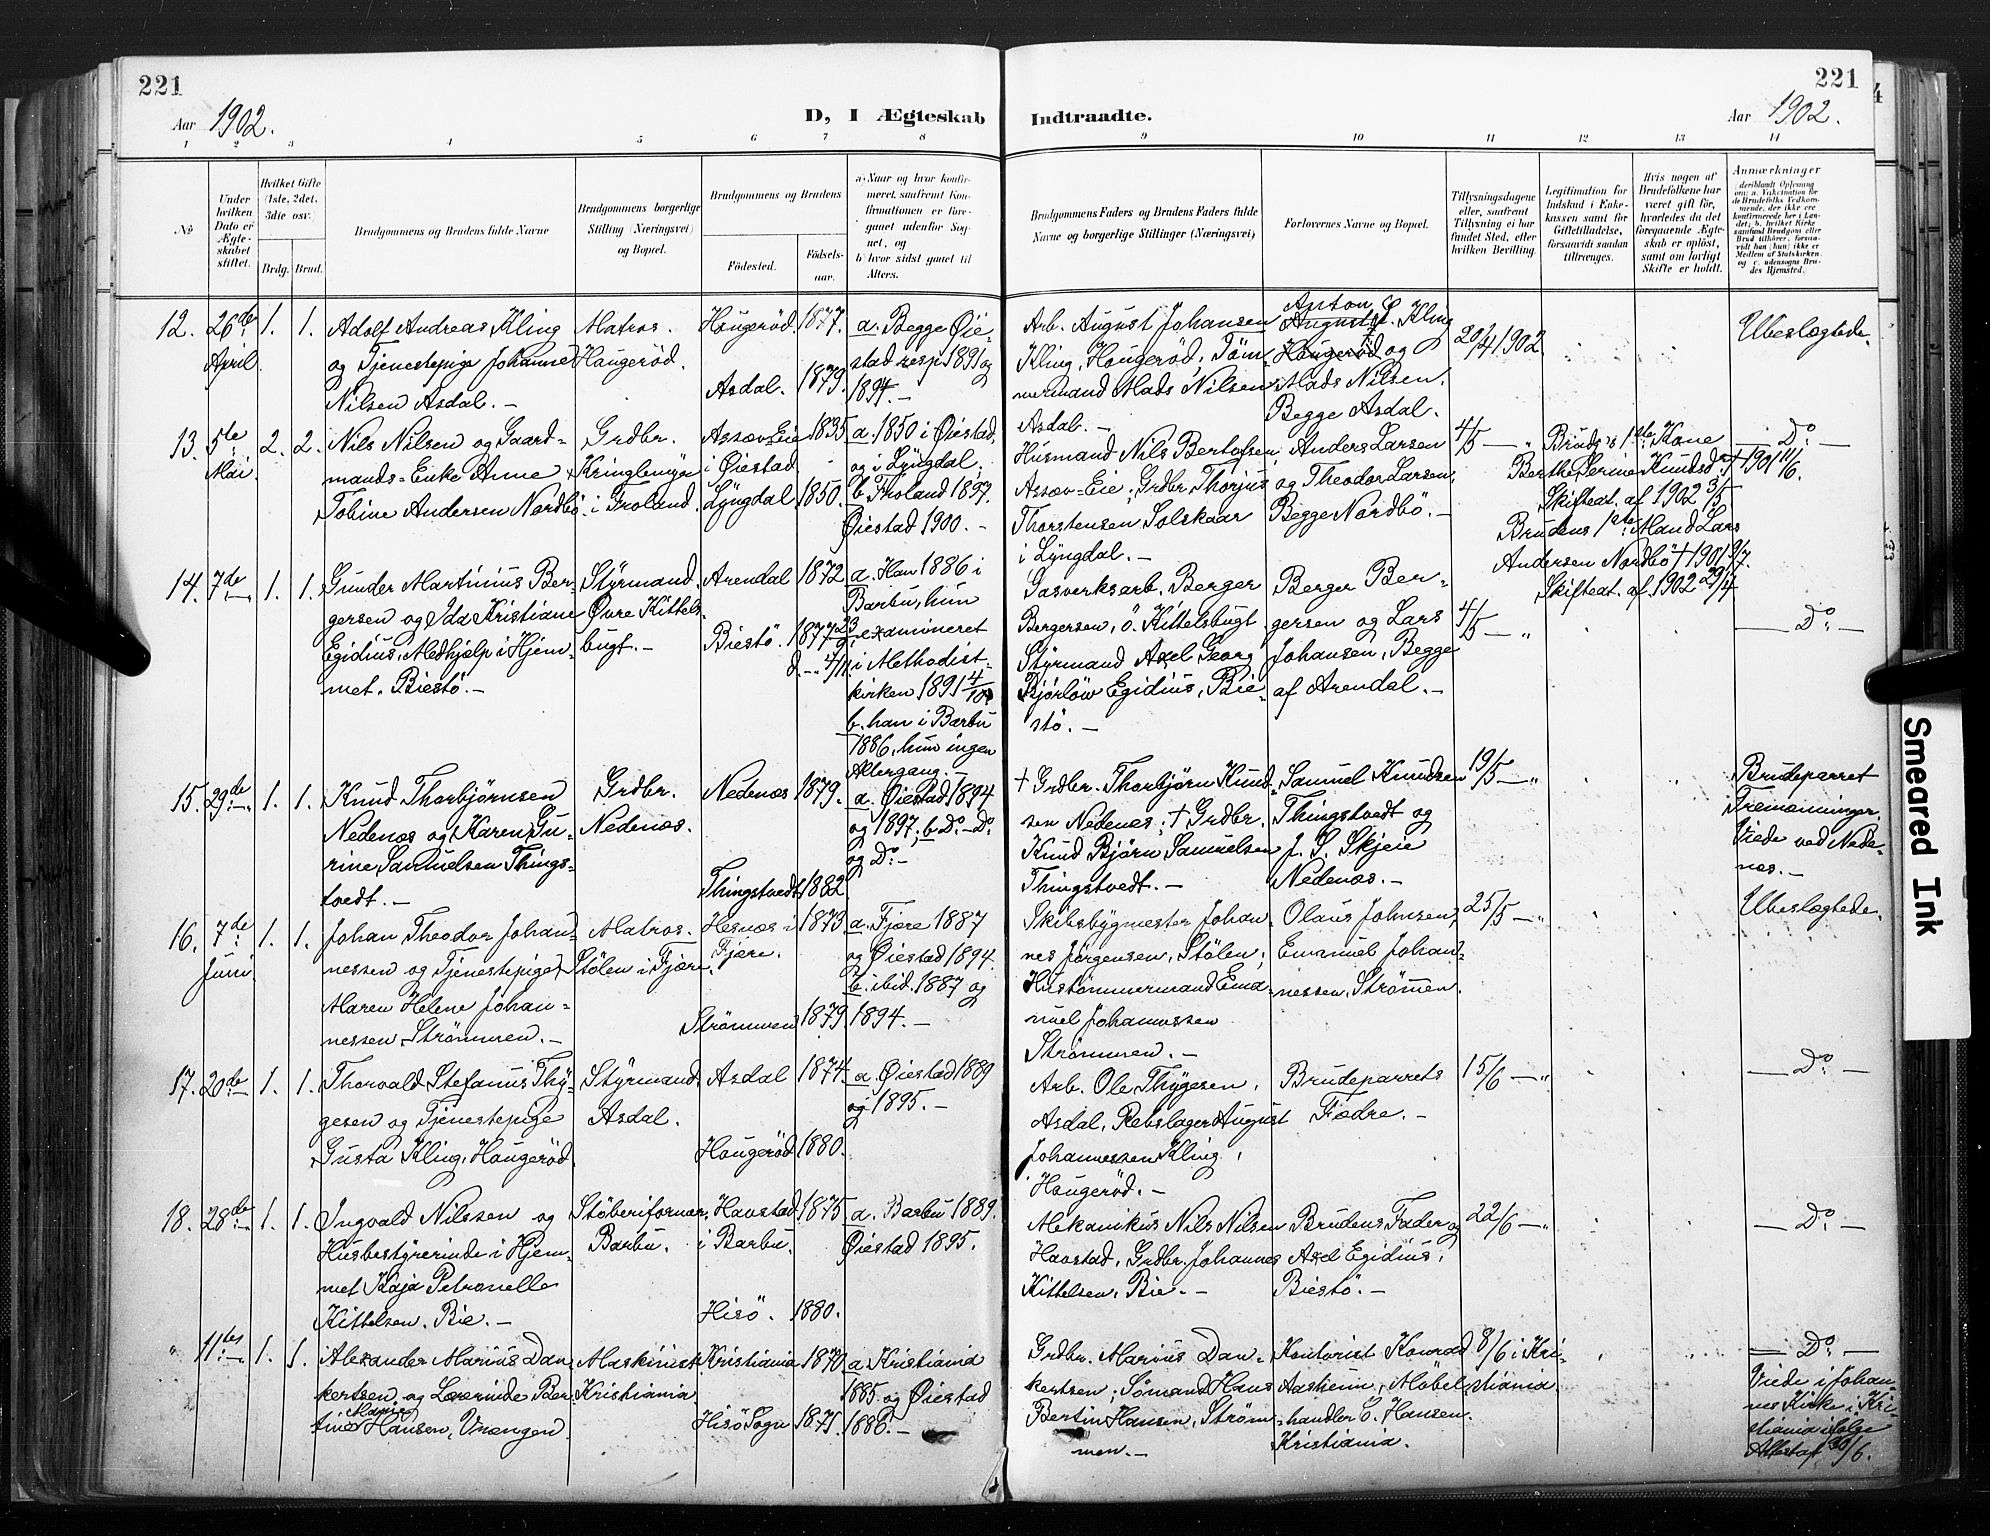 221
221
Aar 1902.
D, I Ægteskab Indtraadte.
Aar 1902.
1 2 3 4 5 6 7 8 9 10 11 12 13 14
№
Under hvilken Dato er Ægteskabet stiftet.
Hvilket Gifte (1ste, 2det, 3die osv.
Brdg. Brud.
Brudgommens og Brudens fulde Navne
Brudgommens borgerlige Stilling (Næringsvei) og Bopæl.
Brudgommens og Brudens
Fødested.
Fødselsaar.
a) Naar og hvor konfirmeret, saafremt Konfirmationen er foregaaet udenfor Sognet, og
b) hvor sidst gaaet til Alters.
Brudgommens Faders og Brudens Faders fulde Navne og borgerlige Stillinger (Næringsvei)
Forlovernes Navne og Bopæl.
Tillysningsdagene eller, saafremt Tillysning ei har fundet Sted, efter hvilken Bevilling.
Legitimation for Indskud i Enkekassen samt for Giftetilladelse, forsaavidt saadan tiltrænges.
Hvis nogen af Brudefolkene har været gift før, hvorledes da det foregaaende Ægteskab er opløst, samt om lovligt Skifte er holdt.
Anmærkninger
12. 26de April 1. 1.
Adolf Andreas Kling
og Tjenestepige Johanne
Nilsen Asdal. –
Matros.
Haugerød.
Haugerød. 1877.
Asdal. 1879.
a. Begge Øie-
stad resp. 1891 og
1894. –
Arb. August Johansen
Kling, Haugerød, Töm-
mermand Mads Nilsen
Asdal. –
Anton E. Kling
Haugerød og
Mads Nilsen.
Begge Asdal.
20/4 1902
Ubeslægtede.
13. 5te Mai 2. 2.
Nils Nilsen og Gaard-
mands-Enke Anne
Tobine Andersen Nordbö.
Grdbr.
Kringlemyr
i Froland.
Assæv Eie 1835
i Øiestad
Lyngdal 1850.
a. 1850 i Øiestad,
og i Lyngdal.
b. Froland 1897.
Øiestad 1900. –
Husmand Nils Bertofsen,
Assæv-Eie; Grdbr. Thorjus
Thorstensen Solskaar
i Lyngdal. –
Anders Larsen
og Theodor Larsen,
Begge Nordbö. –
4/5 — „
Brudg's 1ste Kone
Berthe Serine Knudsdr. † 1901 11/6.
Skifteat. af 1902 3/5
Brudens 1ste Mand Lars
Andersen Nordbö † 1901 9/7.
Skifteat. af 1902 29/4
— Do –
14. 7de 1. 1.
Gunder Martinius Ber-
gersen og Ida Kristiane
Egidius, Medhjælp i Hjem-
met. Biestö. –
Styrmand.
Øvre Kittels-
bugt. –
Arendal 1872
Biestö. 1877 23/9
a. Han 1886 i
Barbu, hun
examineret
i Methodist-
kirken 1891 4/10
b. han i Barbu
1886, hun ingen
Altergang. –
Gasverksarb. Berger
Bergersen, ö. Kittelsbugt.
Styrmand Axel Georg
Bjørløw Egidius, Bie-
stö. –
Berger Ber-
gersen og Lars
Johansen, Begge
af Arendal. –
4/5 — „
— Do –
15. 29de 1. 1.
Knud Thorbjørnsen
Nedenæs og Karen Gu-
rine Samuelsen Things-
tvedt. –
Grdbr.
Nedenæs.
Nedenæs 1879.
Thingstvedt 1882.
a. Øiestad 1894
og 1897; b. Do – Do
og Do –
† Grdbr. Thorbjørn Knud-
sen Nedenæs; † Grdbr.
Knud Bjørn Samuelsen
Thingstvedt. –
Samuel Knudsen
Thingstvedt og
J. S. Skjeie
Nedenæs. –
19/5 — „
Brudeparret
Tremænninger.
Viede ved Nede-
næs. –
16. 7de Juni 1. 1.
Johan Theodor Johan-
nessen og Tjenestepige
Maren Helene Johan-
nessen Strømmen. –
Matros.
Stølen i Fjære.
Hesnæs i 1873
Fjære.
Strømmen 1879.
a. Fjære 1887
og Øiestad 1894.
b. ibid. 1887 og
1894. –
Skibsbygmester Johan-
nes Jørgensen, Stølen;
Hustömmermand Ema-
nuel Johannessen
Strømmen. –
Olaus Johnsen,
Emanuel Johan-
nessen, Strømen.
25/5 — „
Ubeslægtede.
17. 20de 1. 1.
Thorvald Stefanus Thy-
gesen og Tjenestepige
Gusta Kling, Haugerød.
Styrmand
Asdal.
Asdal 1874
Haugerød 1880.
a. Øiestad 1889
og 1895. –
Arb. Ole Thygesen,
Asdal, Rebslager August
Johannessen Kling,
Haugerød. –
Brudeparrets
Fædre. –
15/6 — „
— Do –
18. 28de 1. 1.
Ingvald Nilssen og
Husbestyrerinde i Hjem-
met Kaja Petronelle
Kittelsen. Bie. –
Støberiformer,
Barbu.
Havstad 1875
i Barbu.
Hisö. 1880.
a. Barbu 1889.
Øiestad 1895.
Mekanikus Nils Nilsen
Havstad, Grdbr. Johannes
Kittelsen. Bie. –
Brudens Fader og
Axel Egidius,
Biestö. –
22/6 — „
— Do –
„ 11te 1. 1.
Alexander Marius Dan-
kertsen og Lærerinde Ber-
tine Marie Hansen, Vrængen.
Maskinist.
Kristiania
Kristiania 1870
Hisö Sogn 1871.
a. Kristiania
1885 og Øiestad
1886. –
Grdbr. Marius Dan-
kertsen; Sömand Hans
Bertin Hansen, Strøm-
men. –
Kontorist Konrad
Aasheim, Møbel-
handler C. Hansen.
Kristiania.
8/6 i Kri-
stiania.
— Do –
Viede i Johan-
nes Kirke i Kri-
stiania ifølge
Attest af 30/6.
Smeared Ink